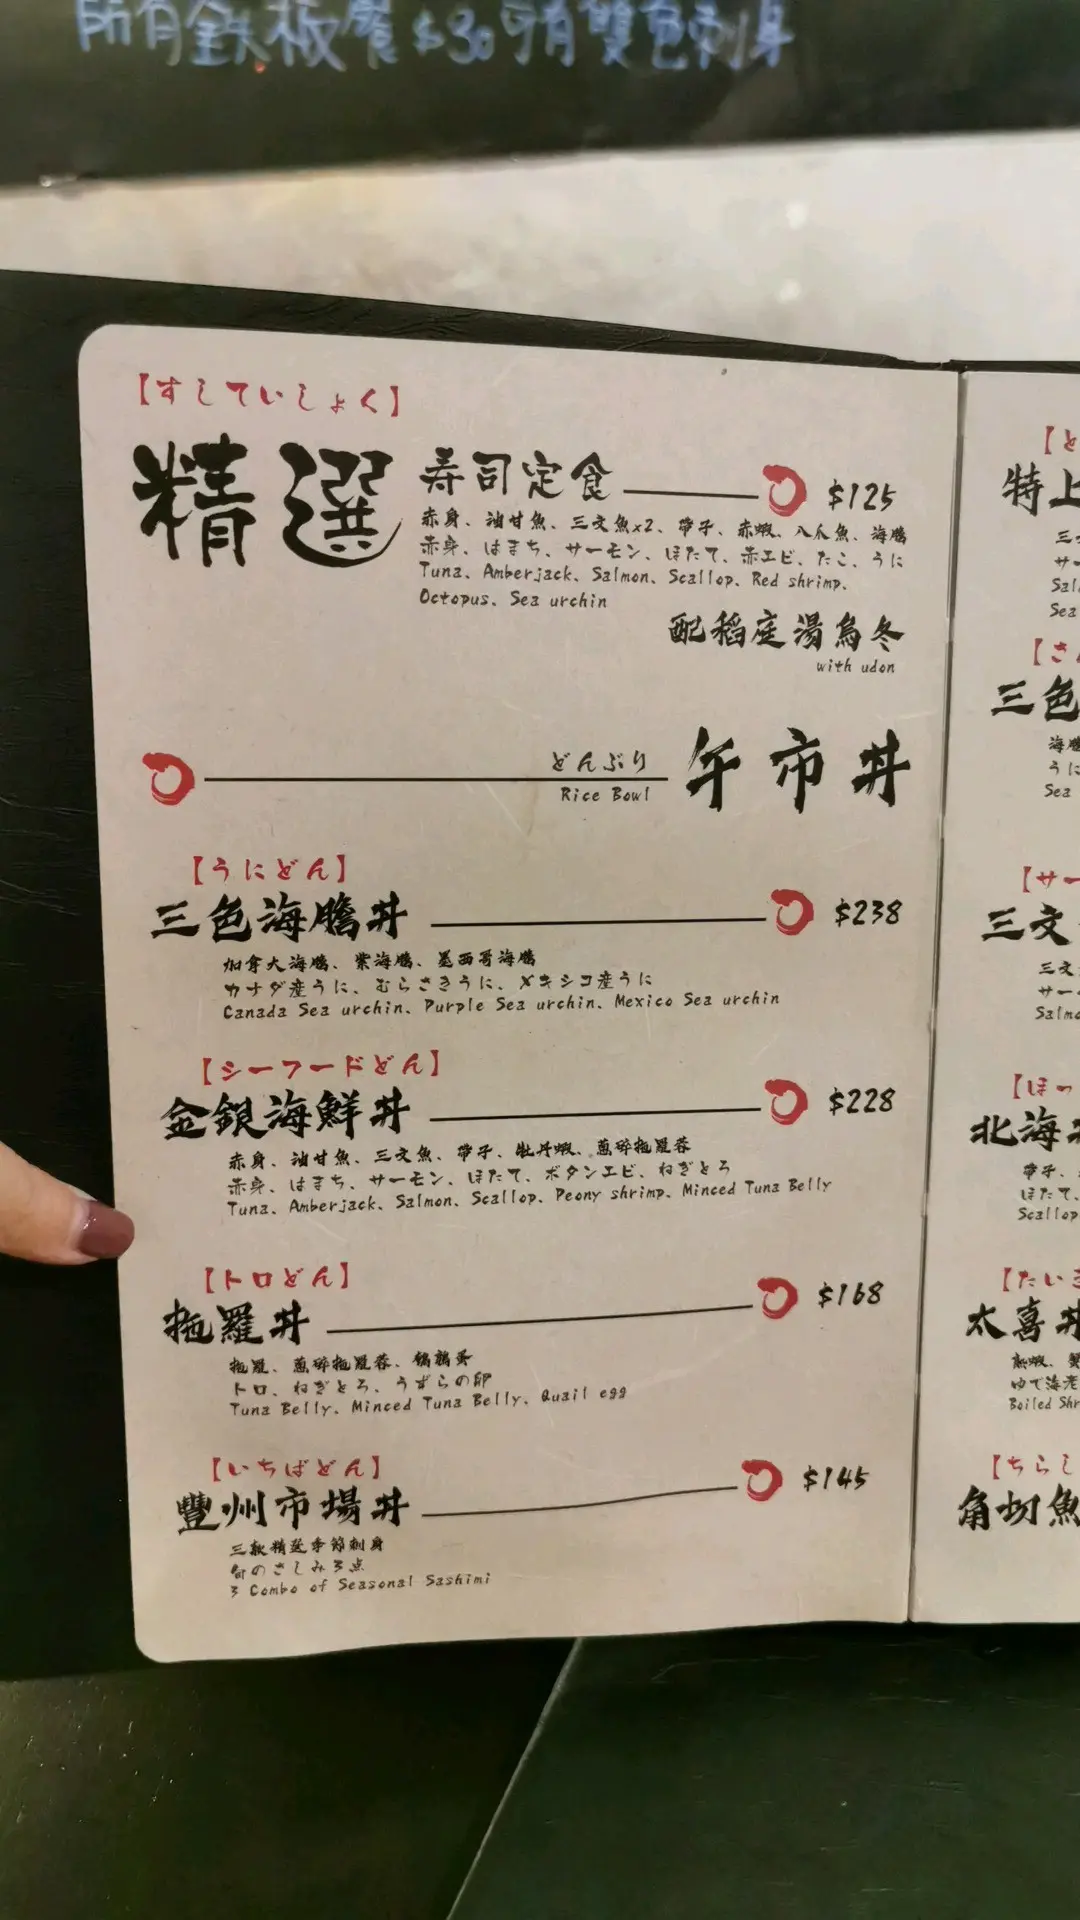 所有鉄板餐$30可有雙色刺身
【すしていしょく】
精選 寿司定食 $125
赤身、油甘魚、三文魚x2、帶子、赤蝦、八爪魚、海膽
赤身、はまち、サーモン、ほたて、赤エビ、たこ、うに
Tuna、Amberjack、Salmon、Scallop、Red shrimp、
Octopus、Sea urchin
配稻庭湯烏冬
with udon
どんぶり
Rice Bowl
午市丼
【うにどん】
三色海膽丼 $238
加拿大海膽、紫海膽、墨西哥海膽
カナダ産うに、むらさきうに、メキシコ産うに
Canada Sea urchin、Purple Sea urchin、Mexico Sea urchin
【シーフードどん】
金銀海鮮丼 $228
赤身、油甘魚、三文魚、帶子、牡丹蝦、蔥碎拖羅蓉
赤身、はまち、サーモン、ほたて、ボタンエビ、ねぎとろ
Tuna、Amberjack、Salmon、Scallop、Peony shrimp、Minced Tuna Belly
【トロどん】
拖羅丼 $168
拖羅、蔥碎拖羅蓉、鵪鶉蛋
トロ、ねぎとろ、うずらの卵
Tuna Belly、Minced Tuna Belly、Quail egg
【いちばどん】
豐州市場丼 $145
三款精選季節刺身
旬のさしみ3点
3 Combo of Seasonal Sashimi
【と
特上
三
サー
Sal
Sea
【さん
三色
海膽
うに
Sea
【サー
三文
三文
サー
Salmo
【ほっ
北海
帶子、
ほたて、
Scallop
【たいき
太喜丼
ゆで海老
Boiled Shr
【ちらし
角切魚